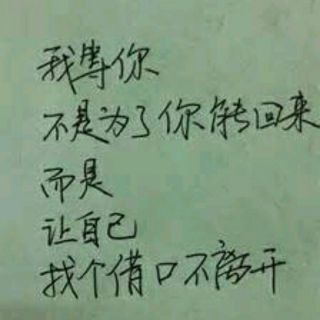 我等你
不是为了你能回来
而是
让自己
找个借口不离开